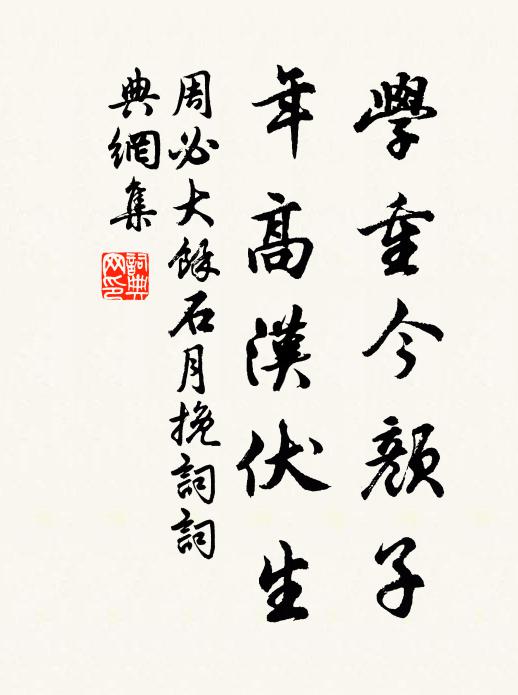 學重今顏子
年高漢伏生
周必大餘石月挽詞詞
典網集
詞典
网印